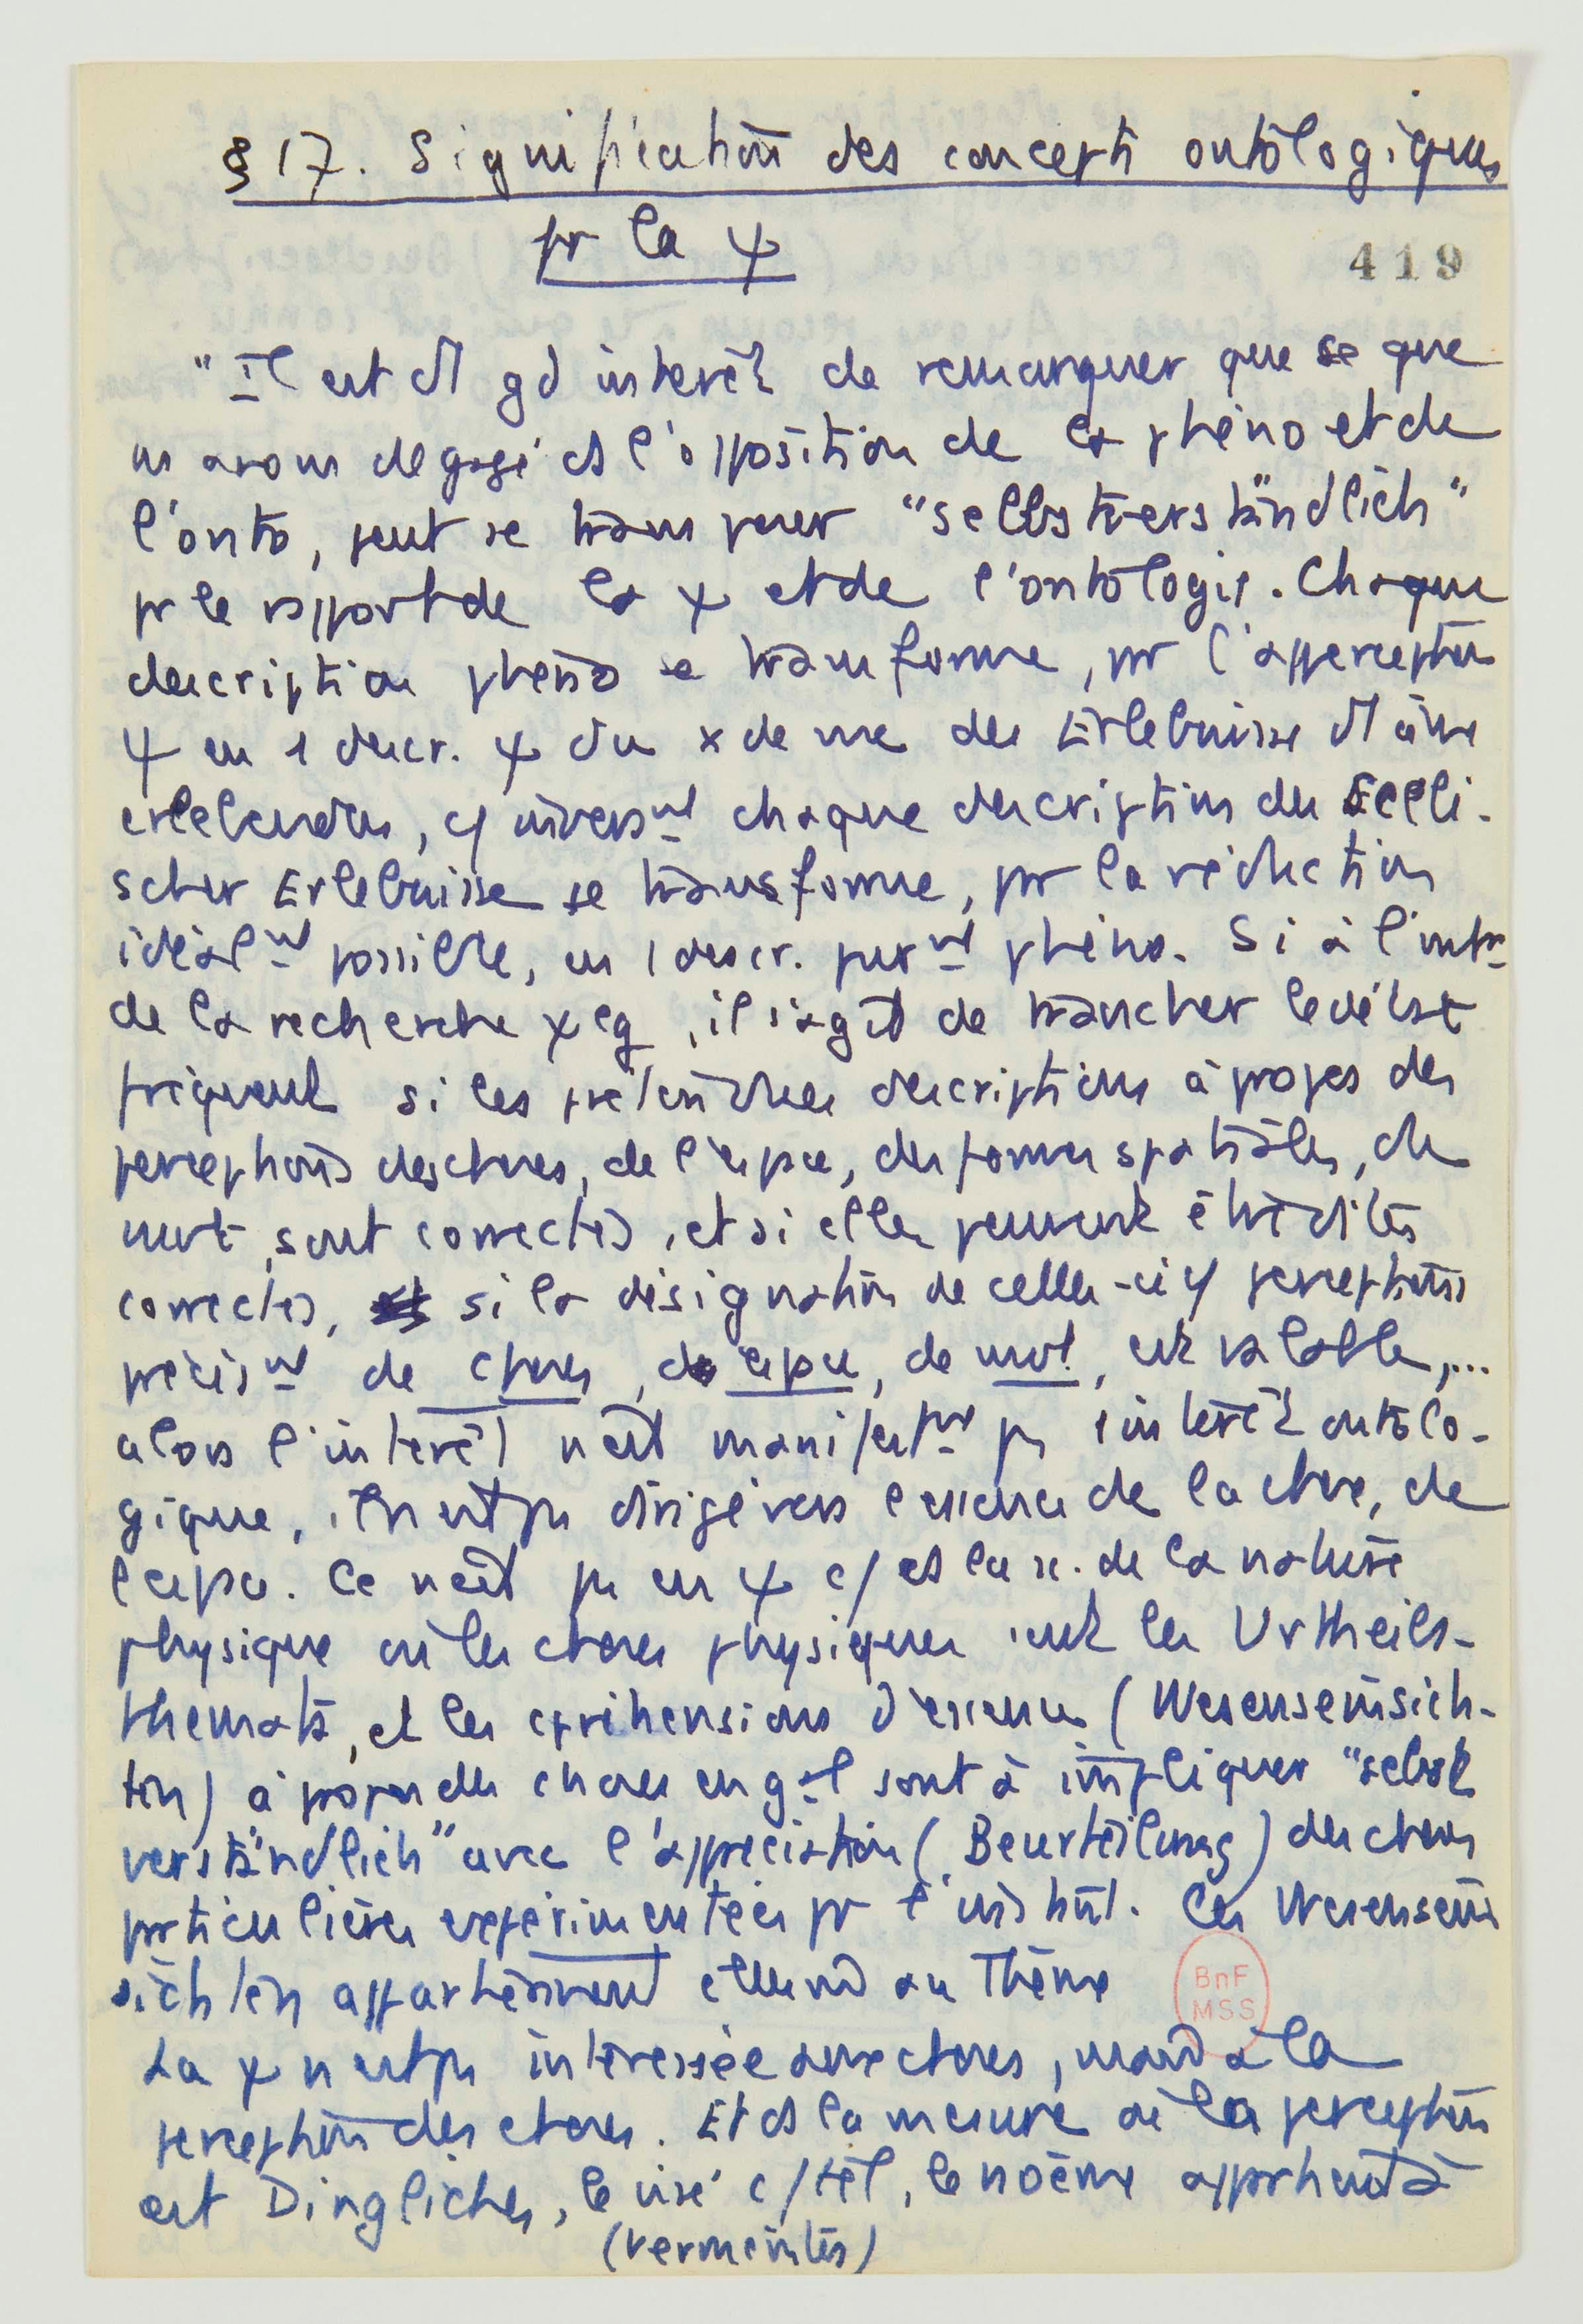 § 17. Signification des concepts ontologiques
pr la ψ
419
"Il est d'1 gd intérêt de remarquer que se que
ns avons dégagé ds l'opposition de la phéno et de
l'onto, peut se transposer "selbstverständlich"
pr le rapport de la ψ et de l'ontologie. Chaque
description phéno se transforme, pr l'apperception
ψ en 1 descr. ψ du x de vue des Erlebnisse d'1 âme
erlebenden, c/ inversnt chaque description des Seeli-
scher Erlebnisse se transforme, pr la réduction
idéalnt possible, en 1 descr. purnt phéno. Si à l'intr
de la recherche ψlg, il s'agit de trancher le débat
fréquent si les prétendues descriptions à propos des
perceptions des choses, de l'espace, des formes spatiales, du
mvt, sont correctes, et si elles peuvent être dites
correctes, si la désignation de celles-ci c/ perceptions
précisnt de choses, de espace, de mvt, est valable,...
alors l'intérêt n'est manifestnt ps 1 intérêt ontolo-
gique, il n'est ps dirigé vers l'essence de la chose, de
l'espace. Ce n'est ps en ψ c/ ds la sc. de la nature
physique où les choses physiques sont les Urtheils-
themata, et les appréhensions d'essence (Wesenseinsich-
ten) à propos des choses en gal sont à impliquer "selbst
verständlich" avec l'appréciation (Beurteilung) des choses
particulières expérimentées pr l'instint. Les Wesensein
sichten appartiennent ellesmd au Thème
La ψ n'est ps intéressée aux choses, mais à la
perception des choses. Et ds la mesure où la perception
est Dingliches, le visé c/ tel, le noème appartient à
(vermeintes)
BnF
MSS